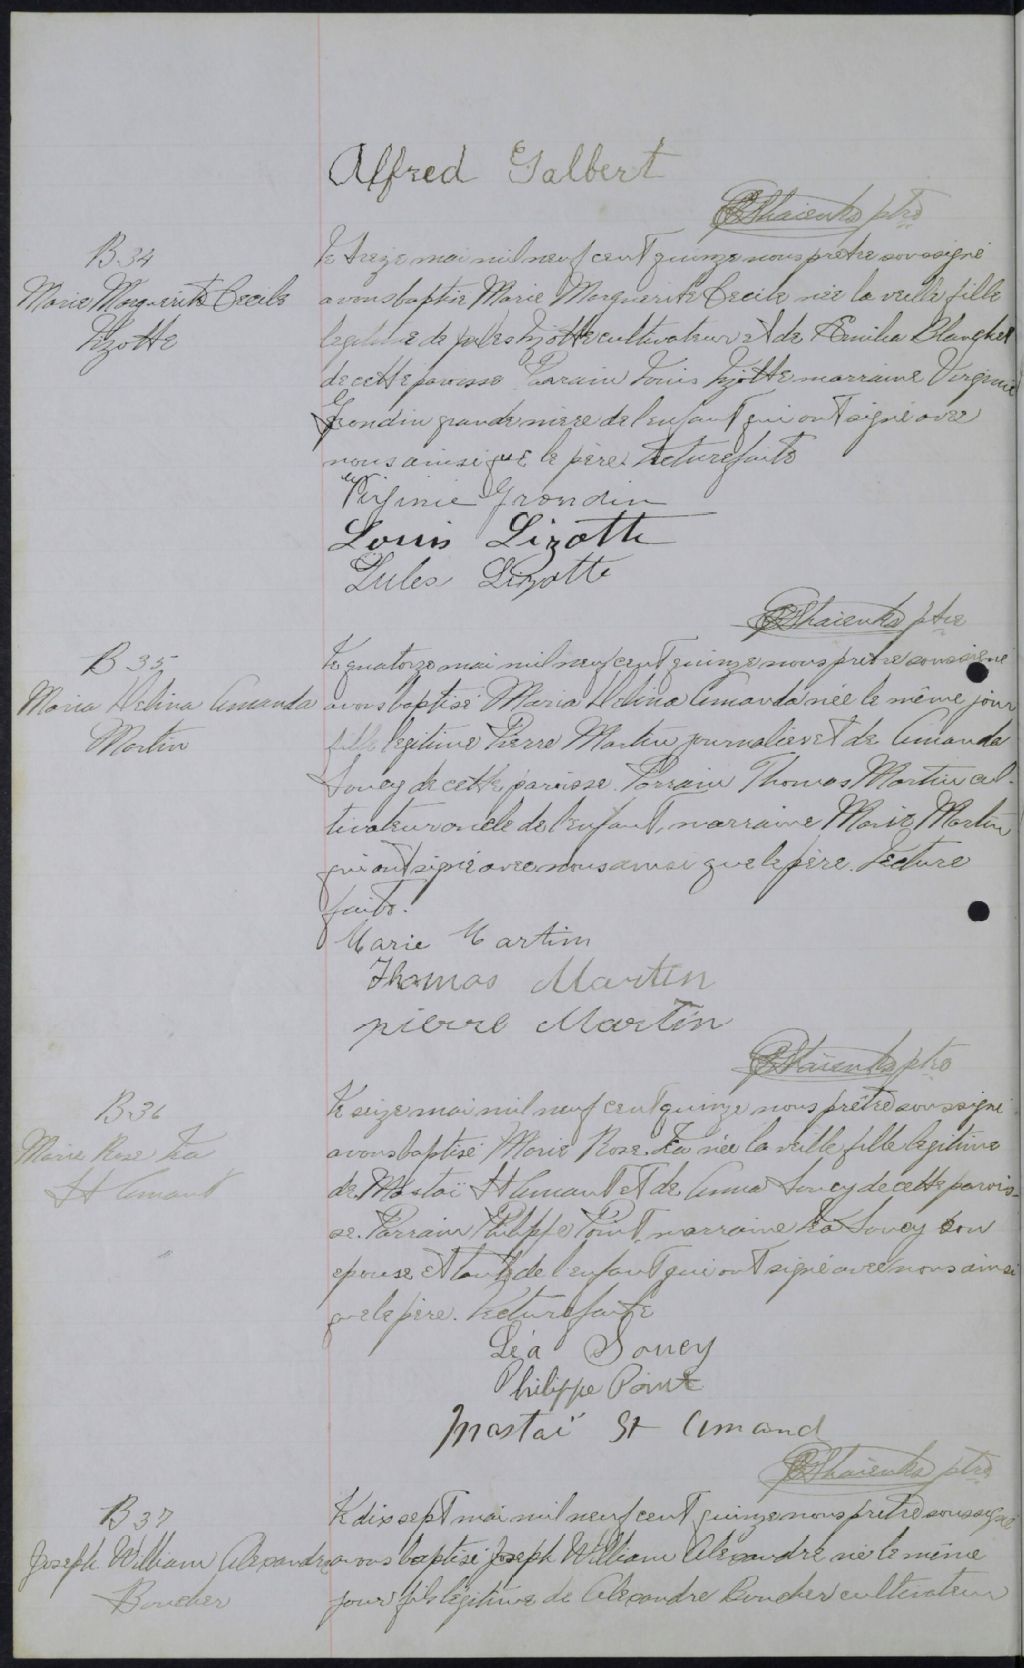 Alfred Galbert
ptre
B 34
Marie Marguerite Cecile
Lizotte
Le treize mai mil neuf cent quinze nous prêtre soussigné
avons baptisé Marie Marguerite Cecile née la veille fille
légitime de Jules Lizotte cultivateur et de Emilia Blanchet
de cette paroisse Parrain Louis Lizotte marraine Virginie
Grondin grande mère de l'enfant qui ont signé avec
nous ainsi que le père. Lecture faite
Virginie Grondin
Louis Lizotte
Jules Lizotte
ptre
B 35
Maria Delina Amanda
Martin
Le quatorze mai mil neuf cent quinze nous prêtre soussigné
avons baptisé Maria Delina Amanda née le même jour
fille légitime Pierre Martin journalier et de Amanda
Soucy de cette paroisse. Parrain Thomas Martin cul-
tivateur oncle de l'enfant, marraine Marie Martin
qui ont signé avec nous ainsi que le père. Lecture
faite.
Marie Martin
Thomas Martin
pierre Martin
ptre
B 36
Marie Rose Léa
St Amant
Le seize mai mil neuf cent quinze nous prêtre soussigné
avons baptisé Marie Rose Léa née la veille fille légitime
de Mastaï St Amant et de Anna Soucy de cette parois-
se. Parrain Philippe Point, marraine Léa Soucy son
epouse et tante de l'enfant qui ont signé avec nous ainsi
que le père. Lecture faite
Léa Soucy
Philippe Point
Mastaï St Amand
ptre
B 37
Joseph William Alexandre
Boucher
Le dix sept mai mil neuf cent quinze nous prêtre soussigné
avons baptisé Joseph William Alexandre né le même
jour fils légitime de Alexandre Boucher cultivateur